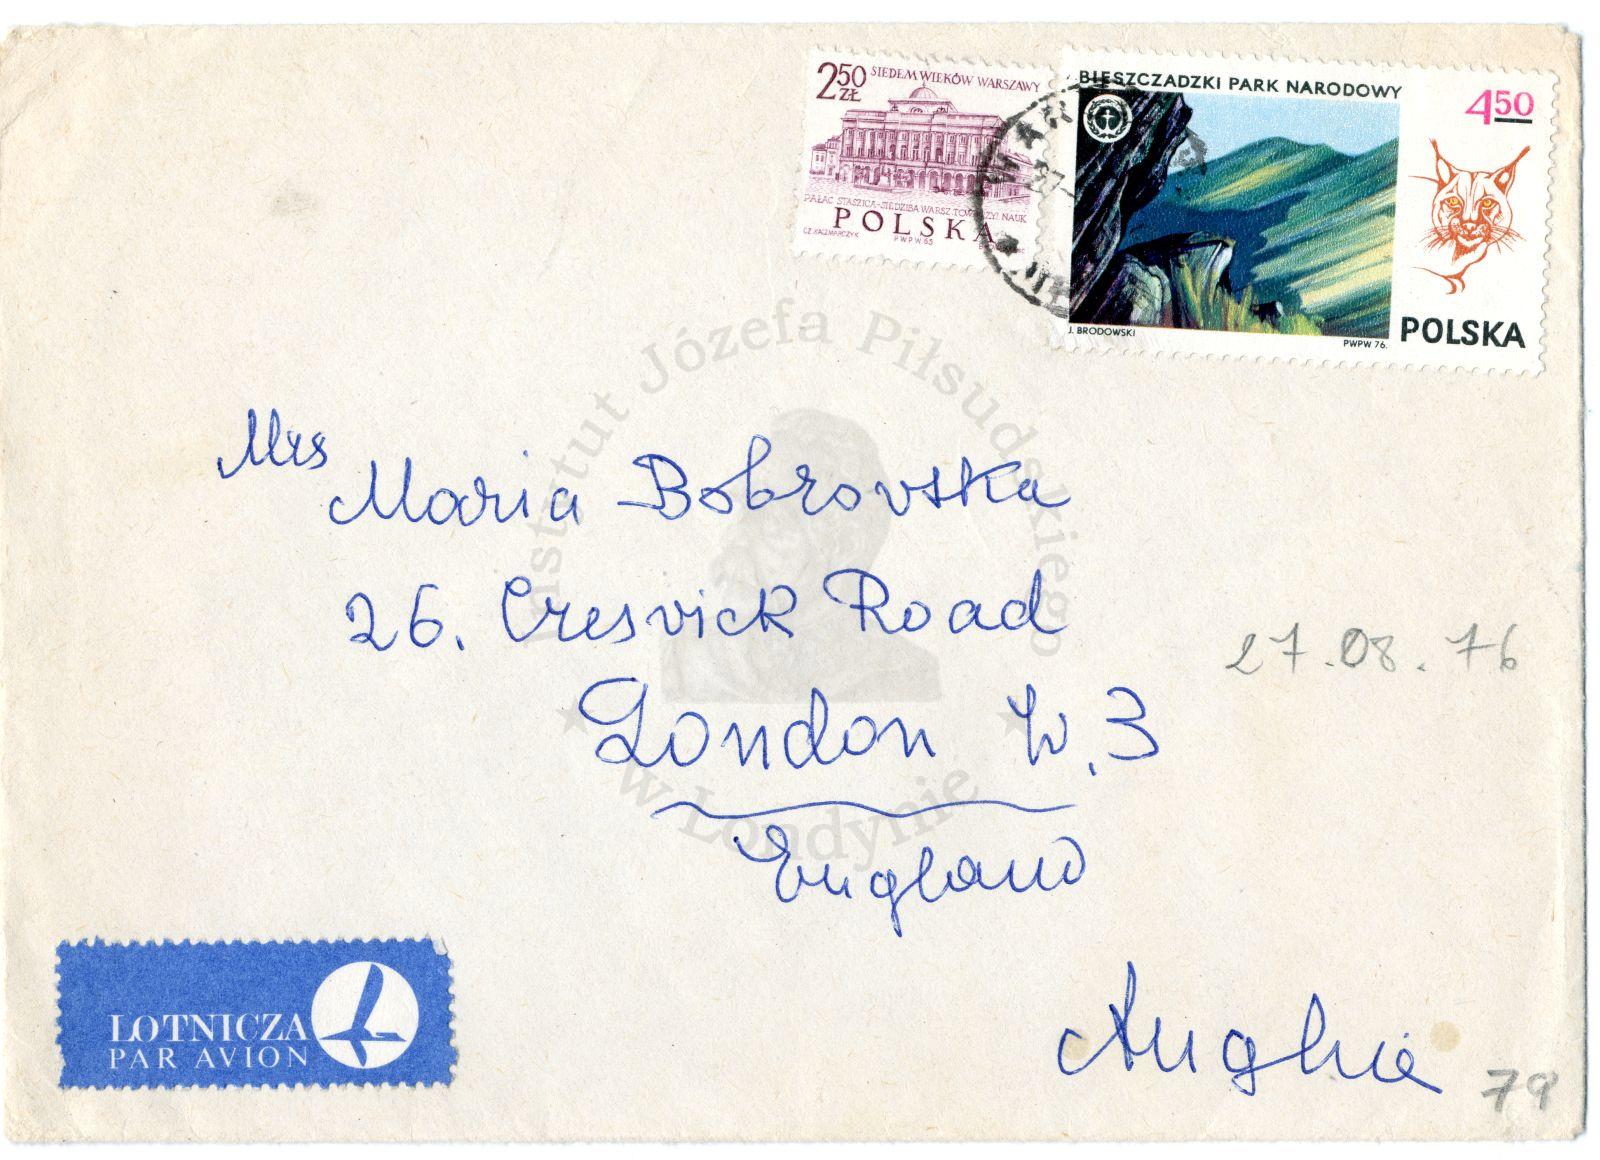 2 50 ZŁ
SIEDEM WIEKÓW WARSZAWY
PAŁAC STASZICA-SIEDZIBA WARSZ. TOW. PRZYJ. NAUK
POLSKA
CZ. KACZMARCZYK PWPW 65
BIESZCZADZKI PARK NARODOWY
4 50
J. BRODOWSKI
PWPW 76.
POLSKA
Instytut Józefa Piłsudskiego
w Londynie
Mrs
Maria Bobrovska
26. Cresvick Road
London W.3
England
Anglia
27.08.76
79
LOTNICZA
PAR AVION